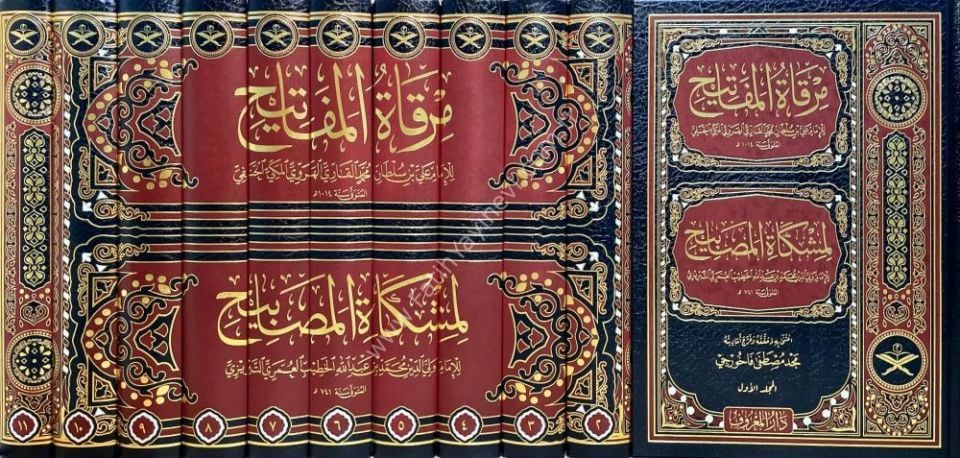 مرقاة المفاتيح
للإمام علي بن سلطان محمد القاري الهروي المكي الحنفي
المتوفى سنة ١٠١٤ هـ
لمشكاة المصابيح
للإمام ولي الدين محمد بن عبد الله الخطيب العمري التبريزي
المتوفى سنة ٧٤١ هـ
١١ ١٠ ٩ ٨ ٧ ٦ ٥ ٤ ٣ ٢
مرقاة المفاتيح
للإمام علي بن سلطان محمد القاري الهروي المكي الحنفي
المتوفى سنة ١٠١٤ هـ
لمشكاة المصابيح
للإمام ولي الدين محمد بن عبد الله الخطيب العمري التبريزي
المتوفى سنة ٧٤١ هـ
اعتنى به وحققه وخرج أحاديثه
محمد مصطفى فاخورجي
المجلد الأول
دار المعروف